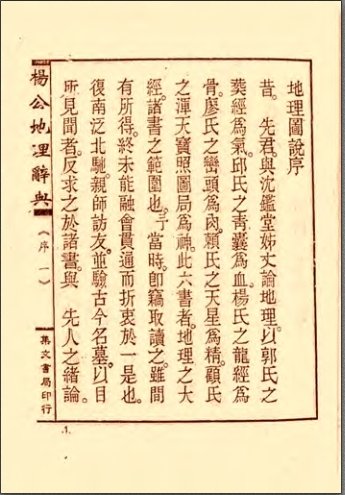 地理圖說序
昔。先君。與沈鑑堂姊丈論地理。以郭氏之
葬經爲氣。邱氏之靑囊爲血。楊氏之龍經爲
骨。廖氏之巒頭爲肉。賴氏之天星爲精。顧氏
之渾天寶照圖局爲神。此六書者。地理之大
經。諸書之範圍也。予當時。卽竊取讀之。雖間
有所得。終未能融會貫通而折衷於一是也。
復南泛北馳。親師訪友。並驗古今名墓。以目
所見聞者。反求之於諸書。與 先人之緒論。
楊公地理辭典
(序一)
集文書局印行
.1.